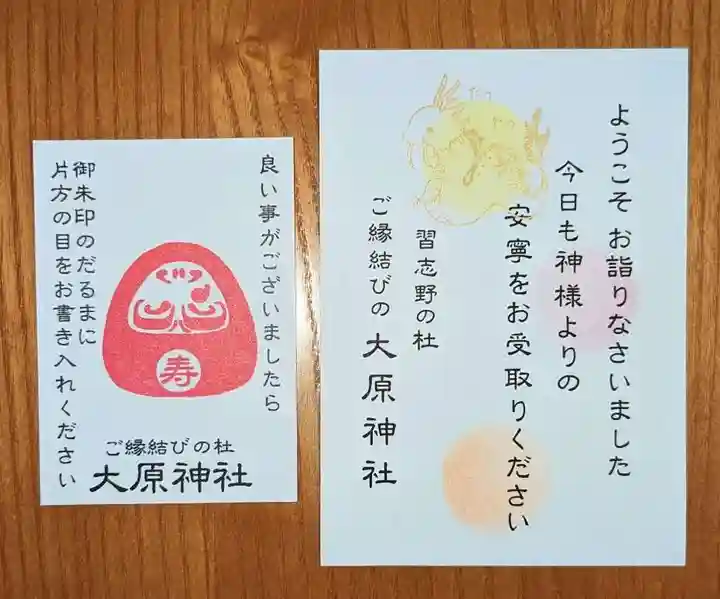 良い事がございましたら
御朱印のだるまに
片方の目をお書き入れください
寿
ご縁結びの杜
大原神社
ようこそ お詣りなさいました
今日も神様よりの
安寧をお受取りください
習志野の杜
ご縁結びの 大原神社